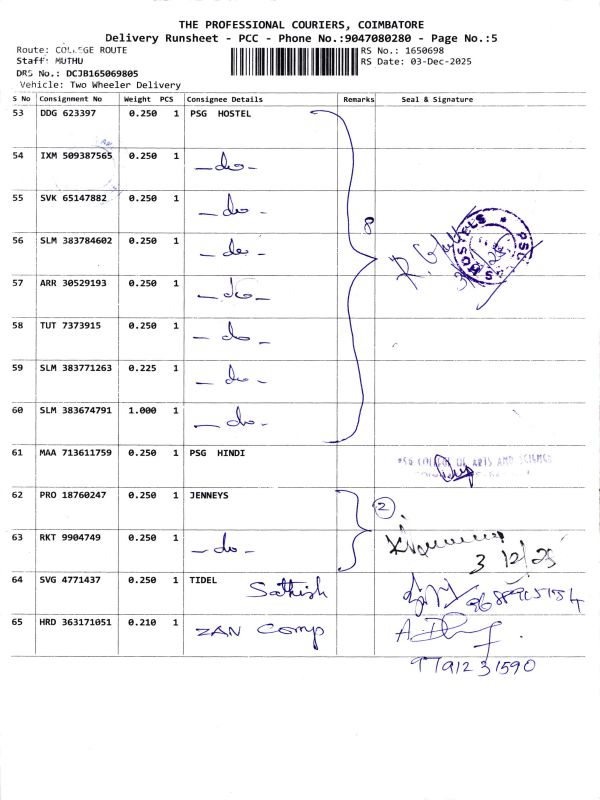 THE PROFESSIONAL COURIERS, COIMBATORE
Delivery Runsheet - PCC - Phone No.:9047080280 - Page No.:5
Route: COLLEGE ROUTE
RS No.: 1650698
Staff: MUTHU
RS Date: 03-Dec-2025
DRS No.: DCJB165069805
Vehicle: Two Wheeler Delivery
S No Consignment No Weight PCS Consignee Details Remarks Seal & Signature
53 DDG 623397 0.250 1 PSG HOSTEL
54 IXM 509387565 0.250 1 - do -
55 SVK 65147882 0.250 1 - do -
8
56 SLM 383784602 0.250 1 - do -
PSG HOSTELS
57 ARR 30529193 0.250 1 - do -
58 TUT 7373915 0.250 1 - do -
59 SLM 383771263 0.225 1 - do -
60 SLM 383674791 1.000 1 - do -
61 MAA 713611759 0.250 1 PSG HINDI
PSG COLLEGE OF ARTS AND SCIENCE
62 PRO 18760247 0.250 1 JENNEYS
2
63 RKT 9904749 0.250 1 - do -
3/12/25
64 SVG 4771437 0.250 1 TIDEL
Sathish
65 HRD 363171051 0.210 1 ZAN Comp
9791231590